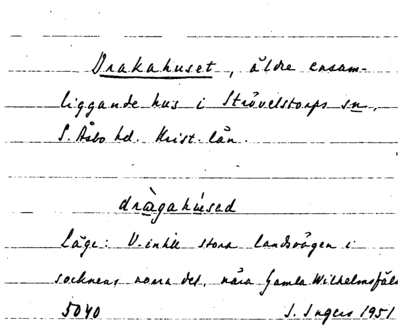 Drakahuset, äldre ensam-
liggande hus i Strövelstorps sn,
S. Åsbo hd. Krist. län.
dràgahúsad
Läge: V. intill stora landsvägen i
socknens norra del, nära gamla Wilhelmsfäls
5040 S. Ingers 1951